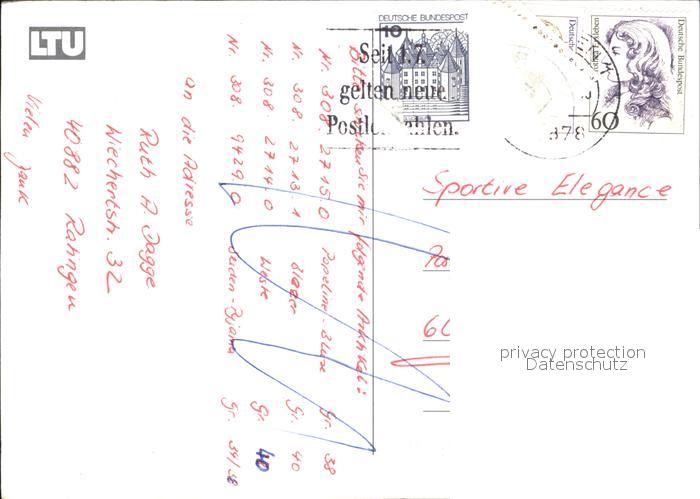 LTU
DEUTSCHE BUNDESPOST
10
Seit 1.7.
gelten neue
Postleitzahlen.
Deutsche Bundespost
60
378
Sportive Elegance
privacy protection
Datenschutz
Bitte schicken Sie mir folgende Artikel:
Nr. 308. 2715.0 Popeline-Bluse Gr. 38
Nr. 308. 2713.1 Blazer Gr. 40
Nr. 308. 2714.0 Weste Gr. 40
Nr. 308. 9429.0 Seiden-Pyjama Gr.
an die Adresse
Ruth A. Jagge
Wiechertstr. 32
40882 Ratingen
Vielen Dank